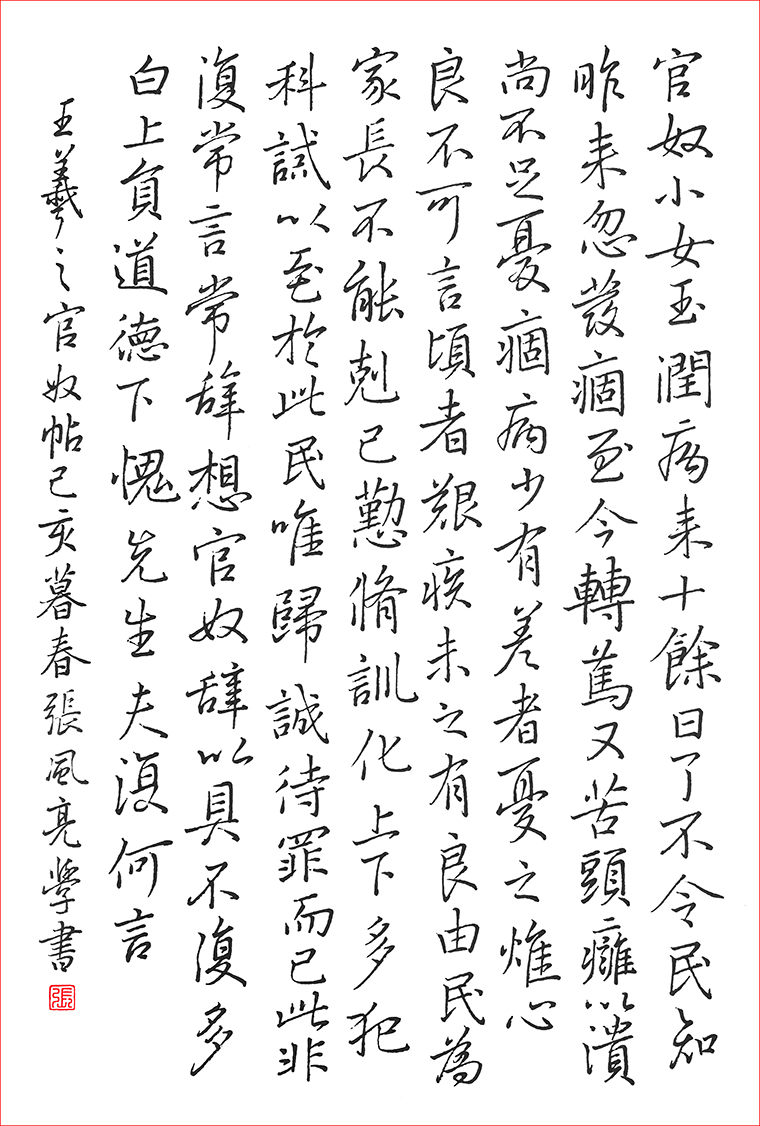 官奴小女玉潤病来十餘日了不令民知
昨来忽發痼至今轉篤又苦頭癰以潰
尚不足憂痼病少有差者憂之燋心
良不可言頃者艱疾未之有良由民為
家長不能剋己懃脩訓化上下多犯
科誡以至於此民唯歸誠待罪而已此非
復常言常辞想官奴辞以具不復多
白上負道德下愧先生夫復何言
王羲之官奴帖己亥暮春張風亮學書
張